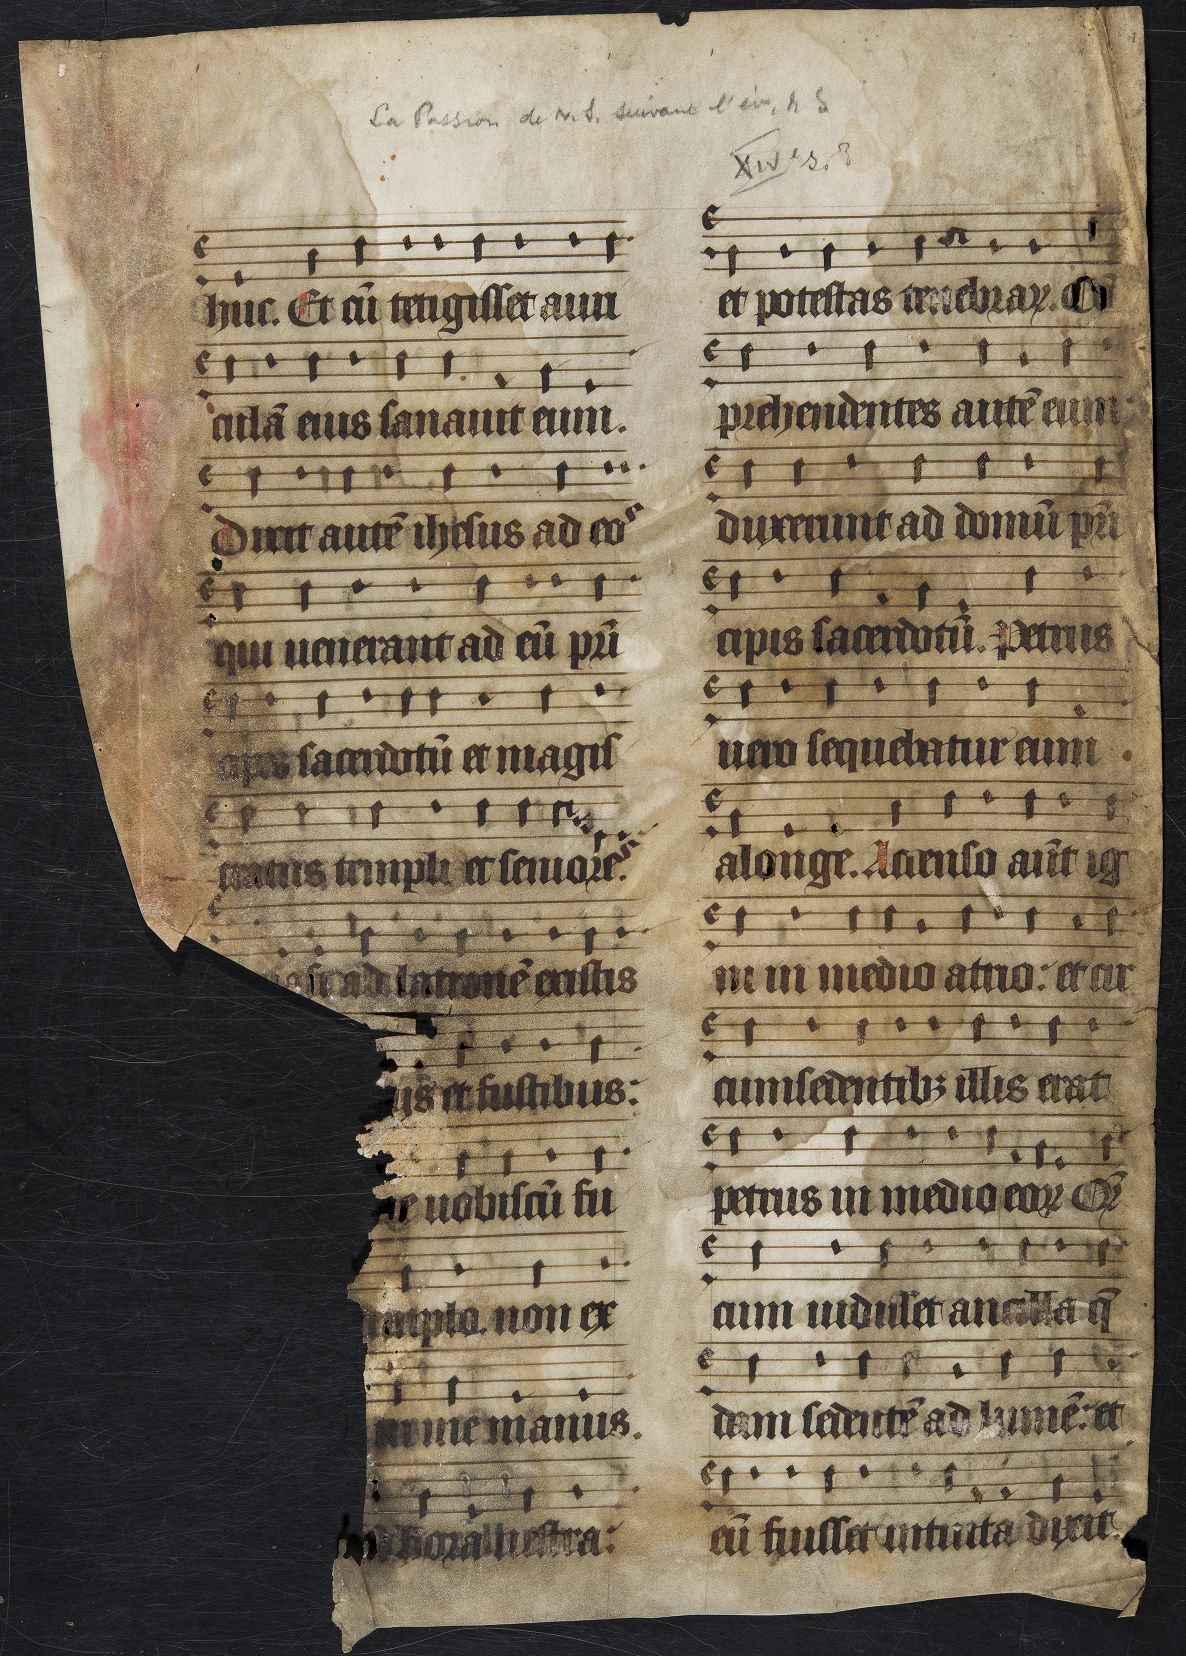 La Passion de N. S. suivant l'év.
XIVe s.
huc. Et cū tetigisset auri
culā eius sanauit eum.
Dixit autē ihesus ad eos
qui uenerant ad eū prī
cipes sacerdotū et magis
tratus templi et seniores.
quasi ad latronē existis
ijs et fustibus:
uobiscū fu
templo. non ex
in me manus.
hora uestra:
et potestas tenebraꝝ. Cō
prehendentes autē eum
duxerunt ad domū prī
cipis sacerdotū. Petrus
uero sequebatur eum
alonge. Accenso aūt ig
ni in medio atrio: et cir
cumsedentibꝫ illis erat
petrus in medio eoꝝ Quē
cum uidisset ancilla q̄
dam sedentē ad lumē: et
eū fuisset intuita dixit.